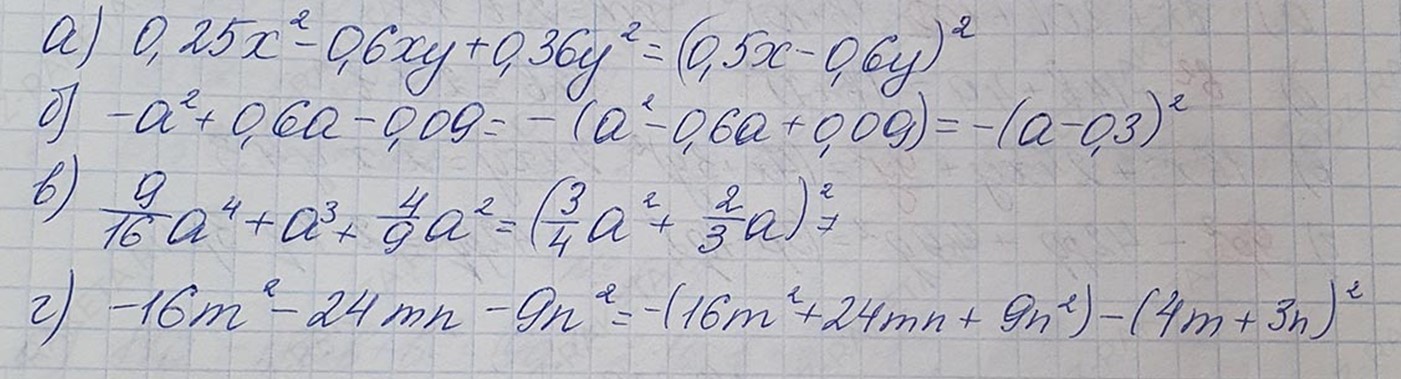 а) 0,25x² - 0,6xy + 0,36y² = (0,5x - 0,6y)²
б) -a² + 0,6a - 0,09 = -(a² - 0,6a + 0,09) = -(a - 0,3)²
в) 9/16 a⁴ + a³ + 4/9 a² = (3/4 a² + 2/3 a)²
г) -16m² - 24mn - 9n² = -(16m² + 24mn + 9n²) - (4m + 3n)²